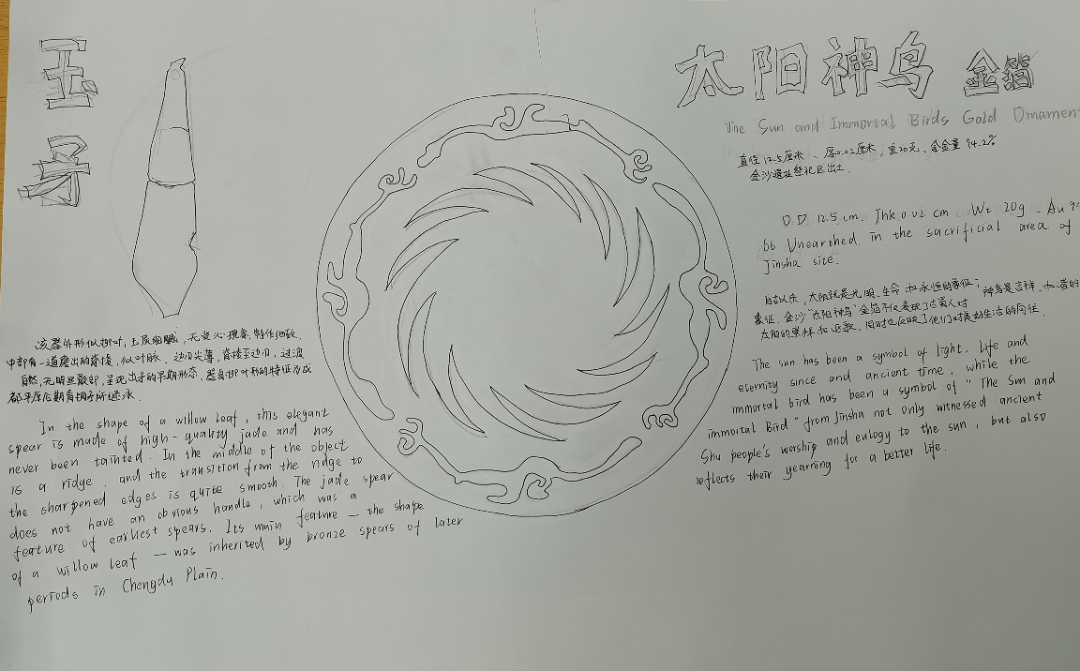 玉
矛
该器外形似柳叶,玉质细腻,无受沁现象,制作细致,
中部有一道磨出的脊棱,似叶脉、边刃尖薄,脊棱至边刃,过渡
自然,无明显骹部,呈现出矛的早期形态。器身柳叶形的特征为成
都平原后期青铜矛所继承.
In the shape of a willow leaf, this elegant
spear is made of high-quality jade and has
never been tainted. In the middle of the object
is a ridge, and the transition from the ridge to
the sharpened edges is quite smooth. The jade spear
does not have an obvious handle, which was a
feature of earliest spears. Its main feature — the shape
of a willow leaf — was inherited by bronze spears of later
periods in Chengdu Plain.
太阳神鸟 金箔
The Sun and Immortal Birds Gold Ornament
直径12.5厘米、厚0.02厘米,重20克、含金量94.2%
金沙遗址祭祀区出土.
O.D 12.5 cm. Thk.0.02 cm. Wt 20g. Au 94
% Unearthed in the sacrificial area of
Jinsha site.
自古以来,太阳就是光明、生命和永恒的象征;神鸟是吉祥、和谐的
象征。金沙"太阳神鸟"金箔不仅表现了古蜀人对
太阳的崇拜和讴歌,同时也反映了他们对美好生活的向往.
The sun has been a symbol of light. life and
eternity since and ancient time, while the
immortal bird has been a symbol of "The Sun and
immortal Bird" from Jinsha not only witnessed ancient
Shu people's worship and eulogy to the sun, but also
reflects their yearning for a better life.